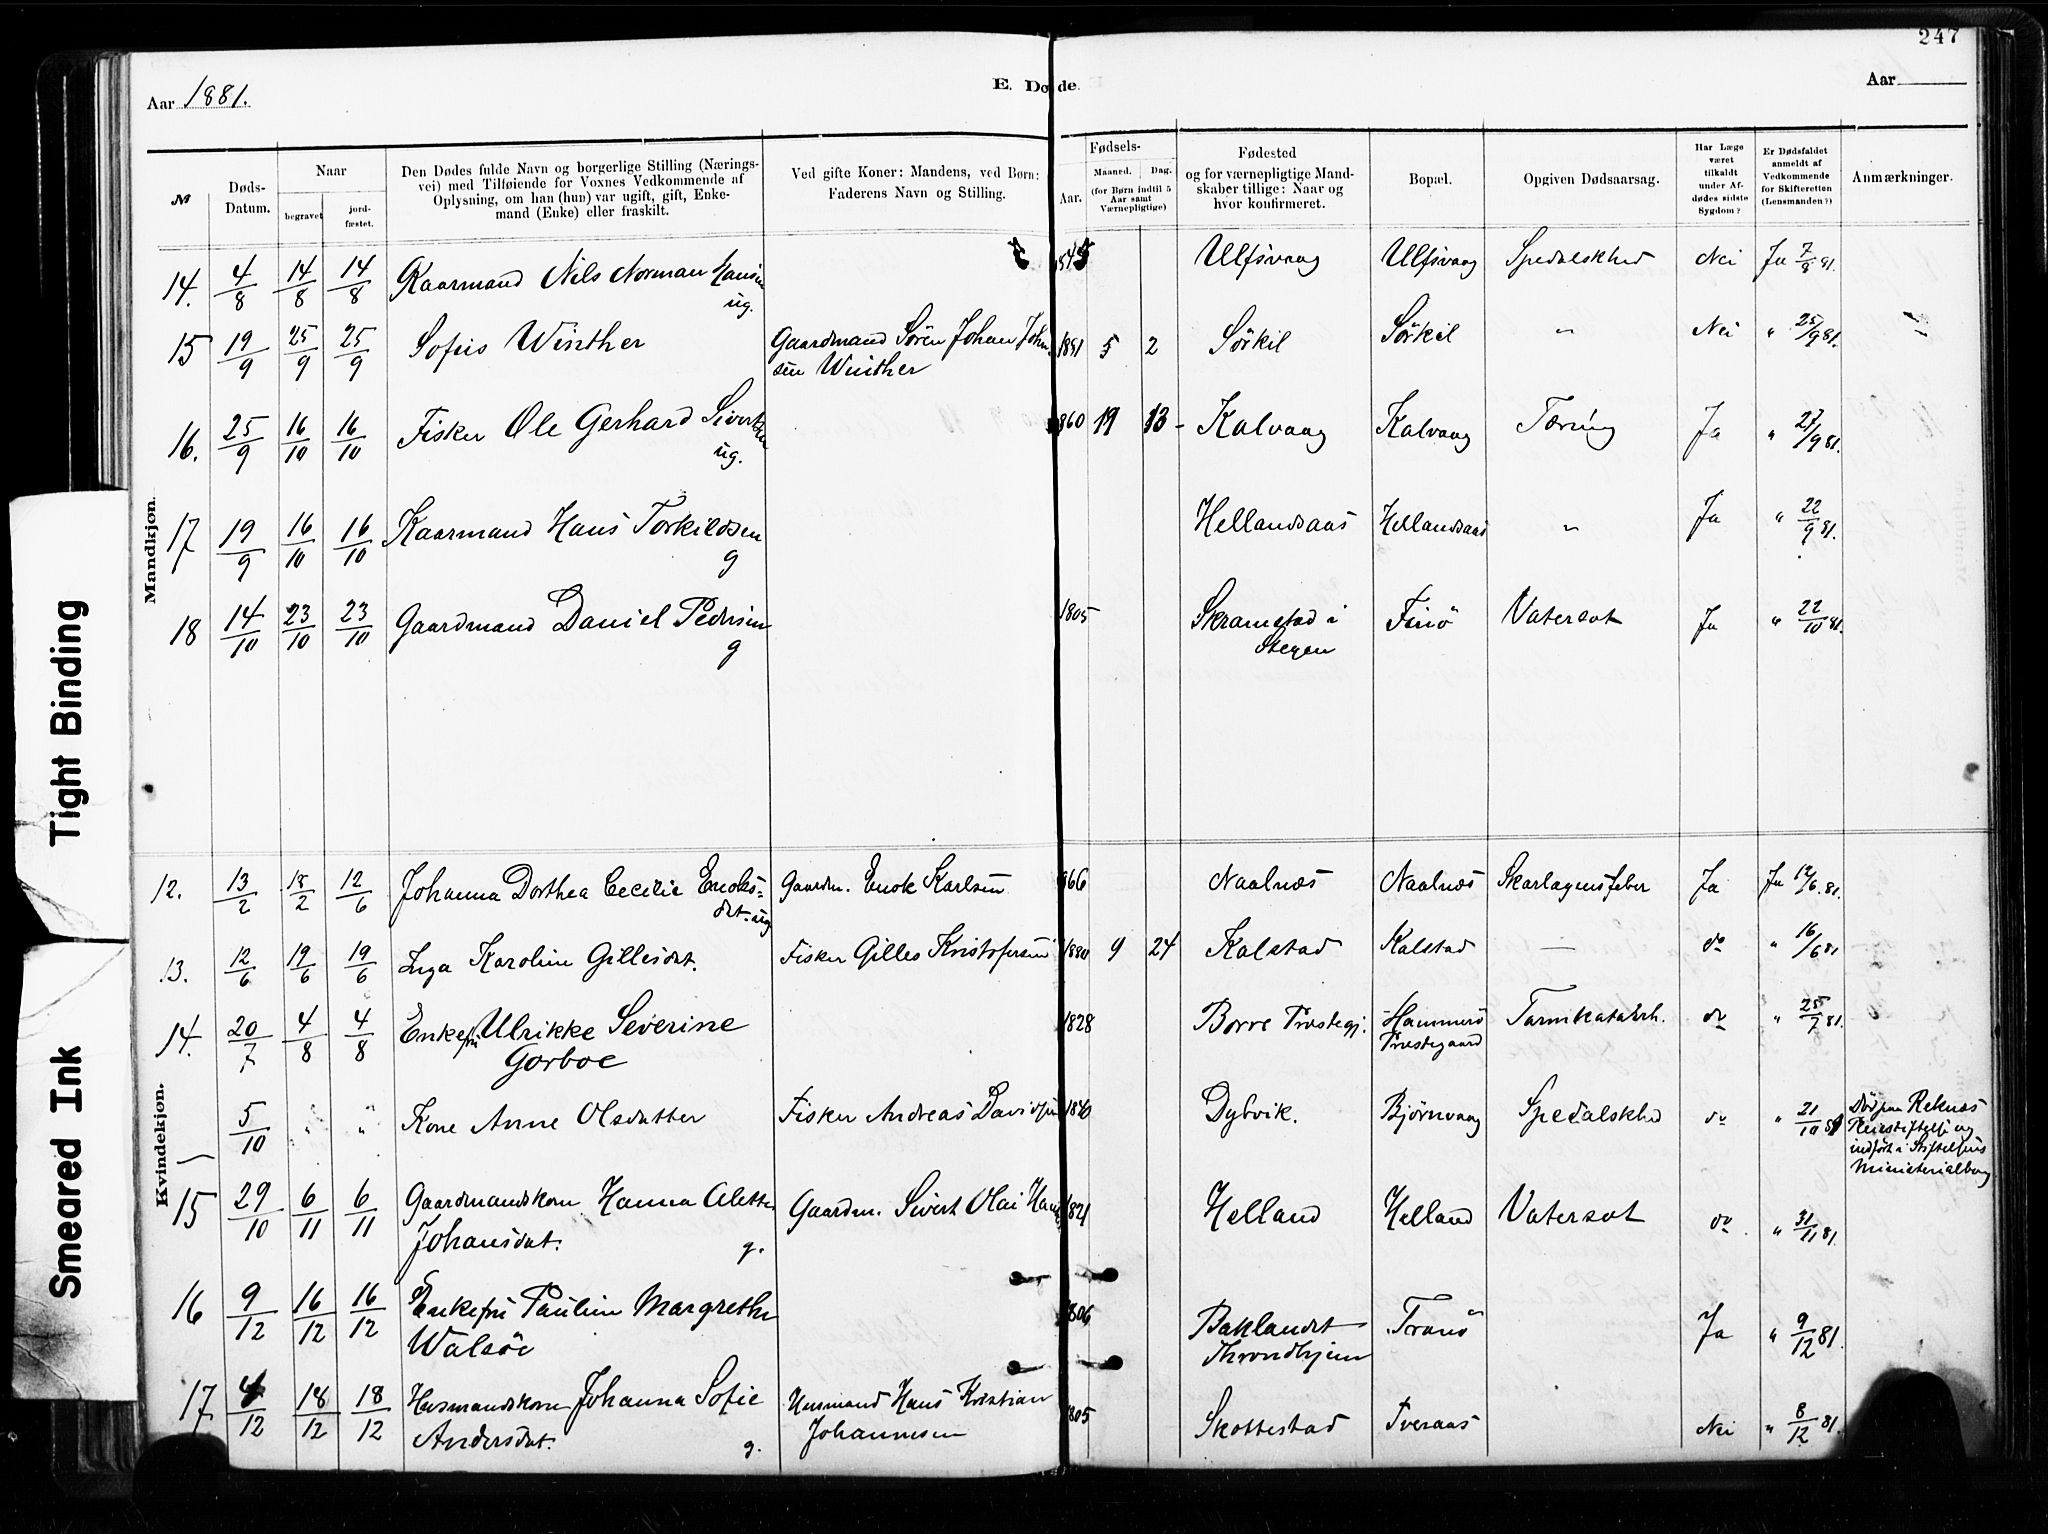 247
Aar 1881.
E. Døde.
Aar
№
Døds-Datum.
Naar
begravet
jordfæstet.
Den Dødes fulde Navn og borgerlige Stilling (Nærings-
vei) med Tilføiende for Voxnes Vedkommende af
Oplysning, om han (hun) var ugift, gift, Enke-
mand (Enke) eller fraskilt.
Ved gifte Koner: Mandens, ved Børn:
Faderens Navn og Stilling.
Fødsels-
Aar.
Maaned. Dag.
(for Børn indtil 5
Aar samt
Værnepligtige)
Fødested
og for værnepligtige Mand-
skaber tillige: Naar og
hvor konfirmeret.
Bopæl.
Opgiven Dødsaarsag.
Har Læge
været
tilkaldt
under Af-
dødes sidste
Sygdom?
Er Dødsfaldet
anmeldt af
Vedkommende
for Skifteretten
(Lensmanden?)
Anmærkninger.
Mandkjøn.
14. 4/8 14/8 14/8 Kaarmand Nils Norman Hansen Ulfsvaag Ulfsvaag Spedalskhed Nei Ja 7/8 81.
ug.
15 19/9 25/9 25/9 Sofus Winther Gaardmand Sören Johan John- 1881 5 2 Sörkil Sörkil " Nei " 25/9 81. "
sen Winther
16. 25/9 16/10 16/10 Fisker Ole Gerhard Sivertsen 1860 19 Kalvaag Kalvaag Tæring Ja " 27/9 81.
ug.
17 19/9 16/10 16/10 Kaarmand Hans Torkildsen Hellandsaas Hellandsaas " Ja " 22/9 81.
g
18 14/10 23/10 23/10 Gaardmand Daniel Pedersen 1805 Skramstad i Finö Vatersot Ja " 22/10 81.
g Stegen
Kvindekjøn.
12. 13/2 18/2 12/6 Johanna Dorthea Cecilie Enoks= Gaardm. Enok Karlsen 1866 Naalnæs Naalnæs Skarlagensfeber Ja Ja 12/6 81.
dat. ug
13. 12/6 19/6 19/6 Inga Karoline Gillesdat. Fisker Gilles Kristofersen 1880 9 24 Kalstad Kalstad — do " 16/6 81
14. 20/7 4/8 4/8 Enkefru Ulrikke Severine 1828 Borre Præstegj. Hammerö Tarmkatarrh. do " 25/7 81.
Gorboe Præstegaard
— 5/10 " " Kone Anne Olsdatter Fisker Andreas Davidsen 1840 Dybvik. Bjørnvaag Spedalskhed do " 21/10 81 Död paa Reknæs
Pleiestiftelse og
indført i Stiftelsens
Ministerialbog
15 29/10 6/11 6/11 Gaardmandskone Hanna Alette Gaardm. Sivert Olai Hansen 1821 Helland Helland Vatersot do " 31/11 81.
Johansdat. g.
16 9/12 16/12 16/12 Enkefru Pauline Margrethe 1806 Baklandet Tranö Ja " 9/12 81.
Walsöe Throndhjem
17 4/12 18/12 18/12 Husmandskone Johanna Sofie Husmand Hans Kristian 1805 Skottestad Tveraas Nei " 8/12 81.
Andersdat. g. Johannesen
Tight Binding
Smeared Ink